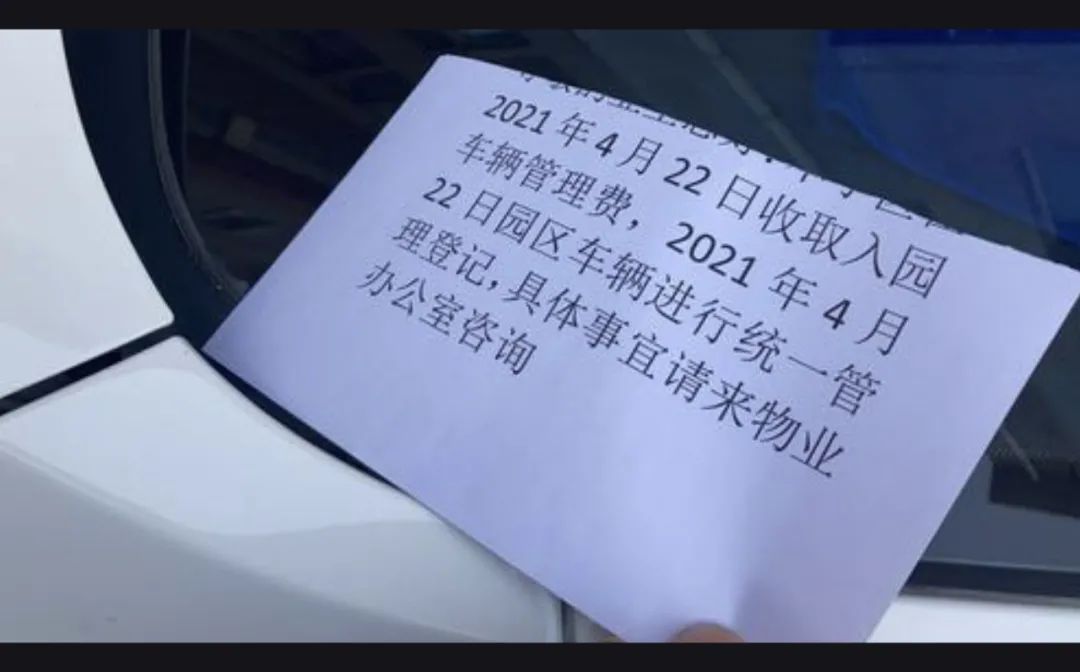 2021年4月22日收取入园
车辆管理费，2021年4月
22日园区车辆进行统一管
理登记，具体事宜请来物业
办公室咨询